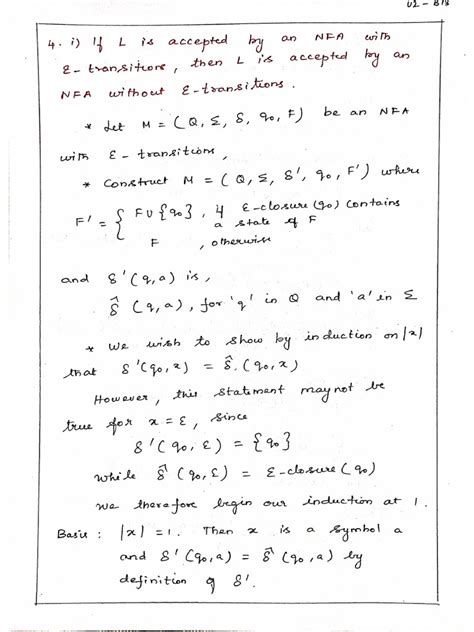 U2 - B1B
4. i) If L is accepted by an NFA with
ε- transitions, then L is accepted by an
NFA without ε-transitions.
* Let M = (Q, Σ, δ, q₀, F) be an NFA
with ε - transitions,
* Construct M = (Q, Σ, δ', q₀, F') where
F' = { F U {q₀}, if ε-closure (q₀) contains
a state of F
F , otherwise
and δ' (q, a) is,
δ̂ (q, a), for 'q' in Q and 'a' in Σ
* We wish to show by induction on |x|
that δ' (q₀, x) = δ̂. (q₀, x)
However, this statement may not be
true for x = ε, since
δ' (q₀, ε) = {q₀}
while δ̂ (q₀, ε) = ε-closure (q₀)
We therefore begin our induction at 1.
Basis : |x| = 1. Then x is a symbol a
and δ' (q₀, a) = δ̂ (q₀, a) by
definition of δ'.